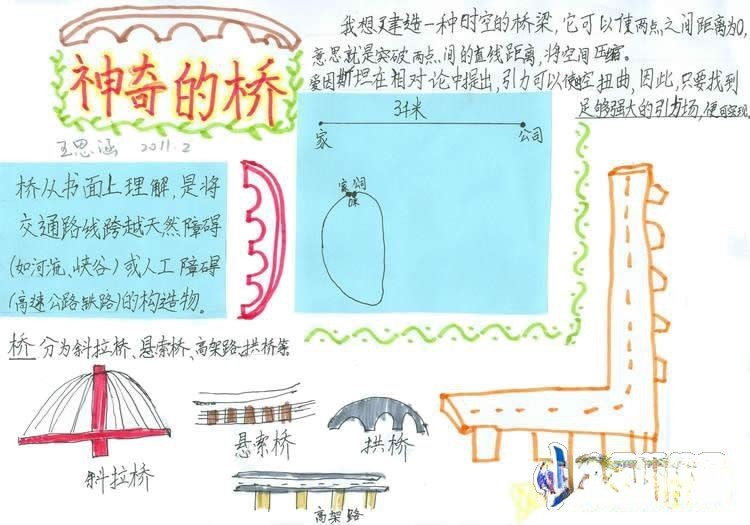 神奇的桥
王思涵 2011.2
我想建造一种时空的桥梁,它可以使两点之间距离为0,
意思就是突破两点间的直线距离,将空间压缩。
爱因斯坦在相对论中提出,引力可以使时空扭曲,因此,只要找到
足够强大的引力场,便可实现
3千米
家 公司
家公司
桥从书面上理解,是将
交通路线跨越天然障碍
(如河流、峡谷)或人工障碍
(高速公路铁路)的构造物。
桥分为斜拉桥、悬索桥、高架路、拱桥等。
斜拉桥
悬索桥
拱桥
高架路